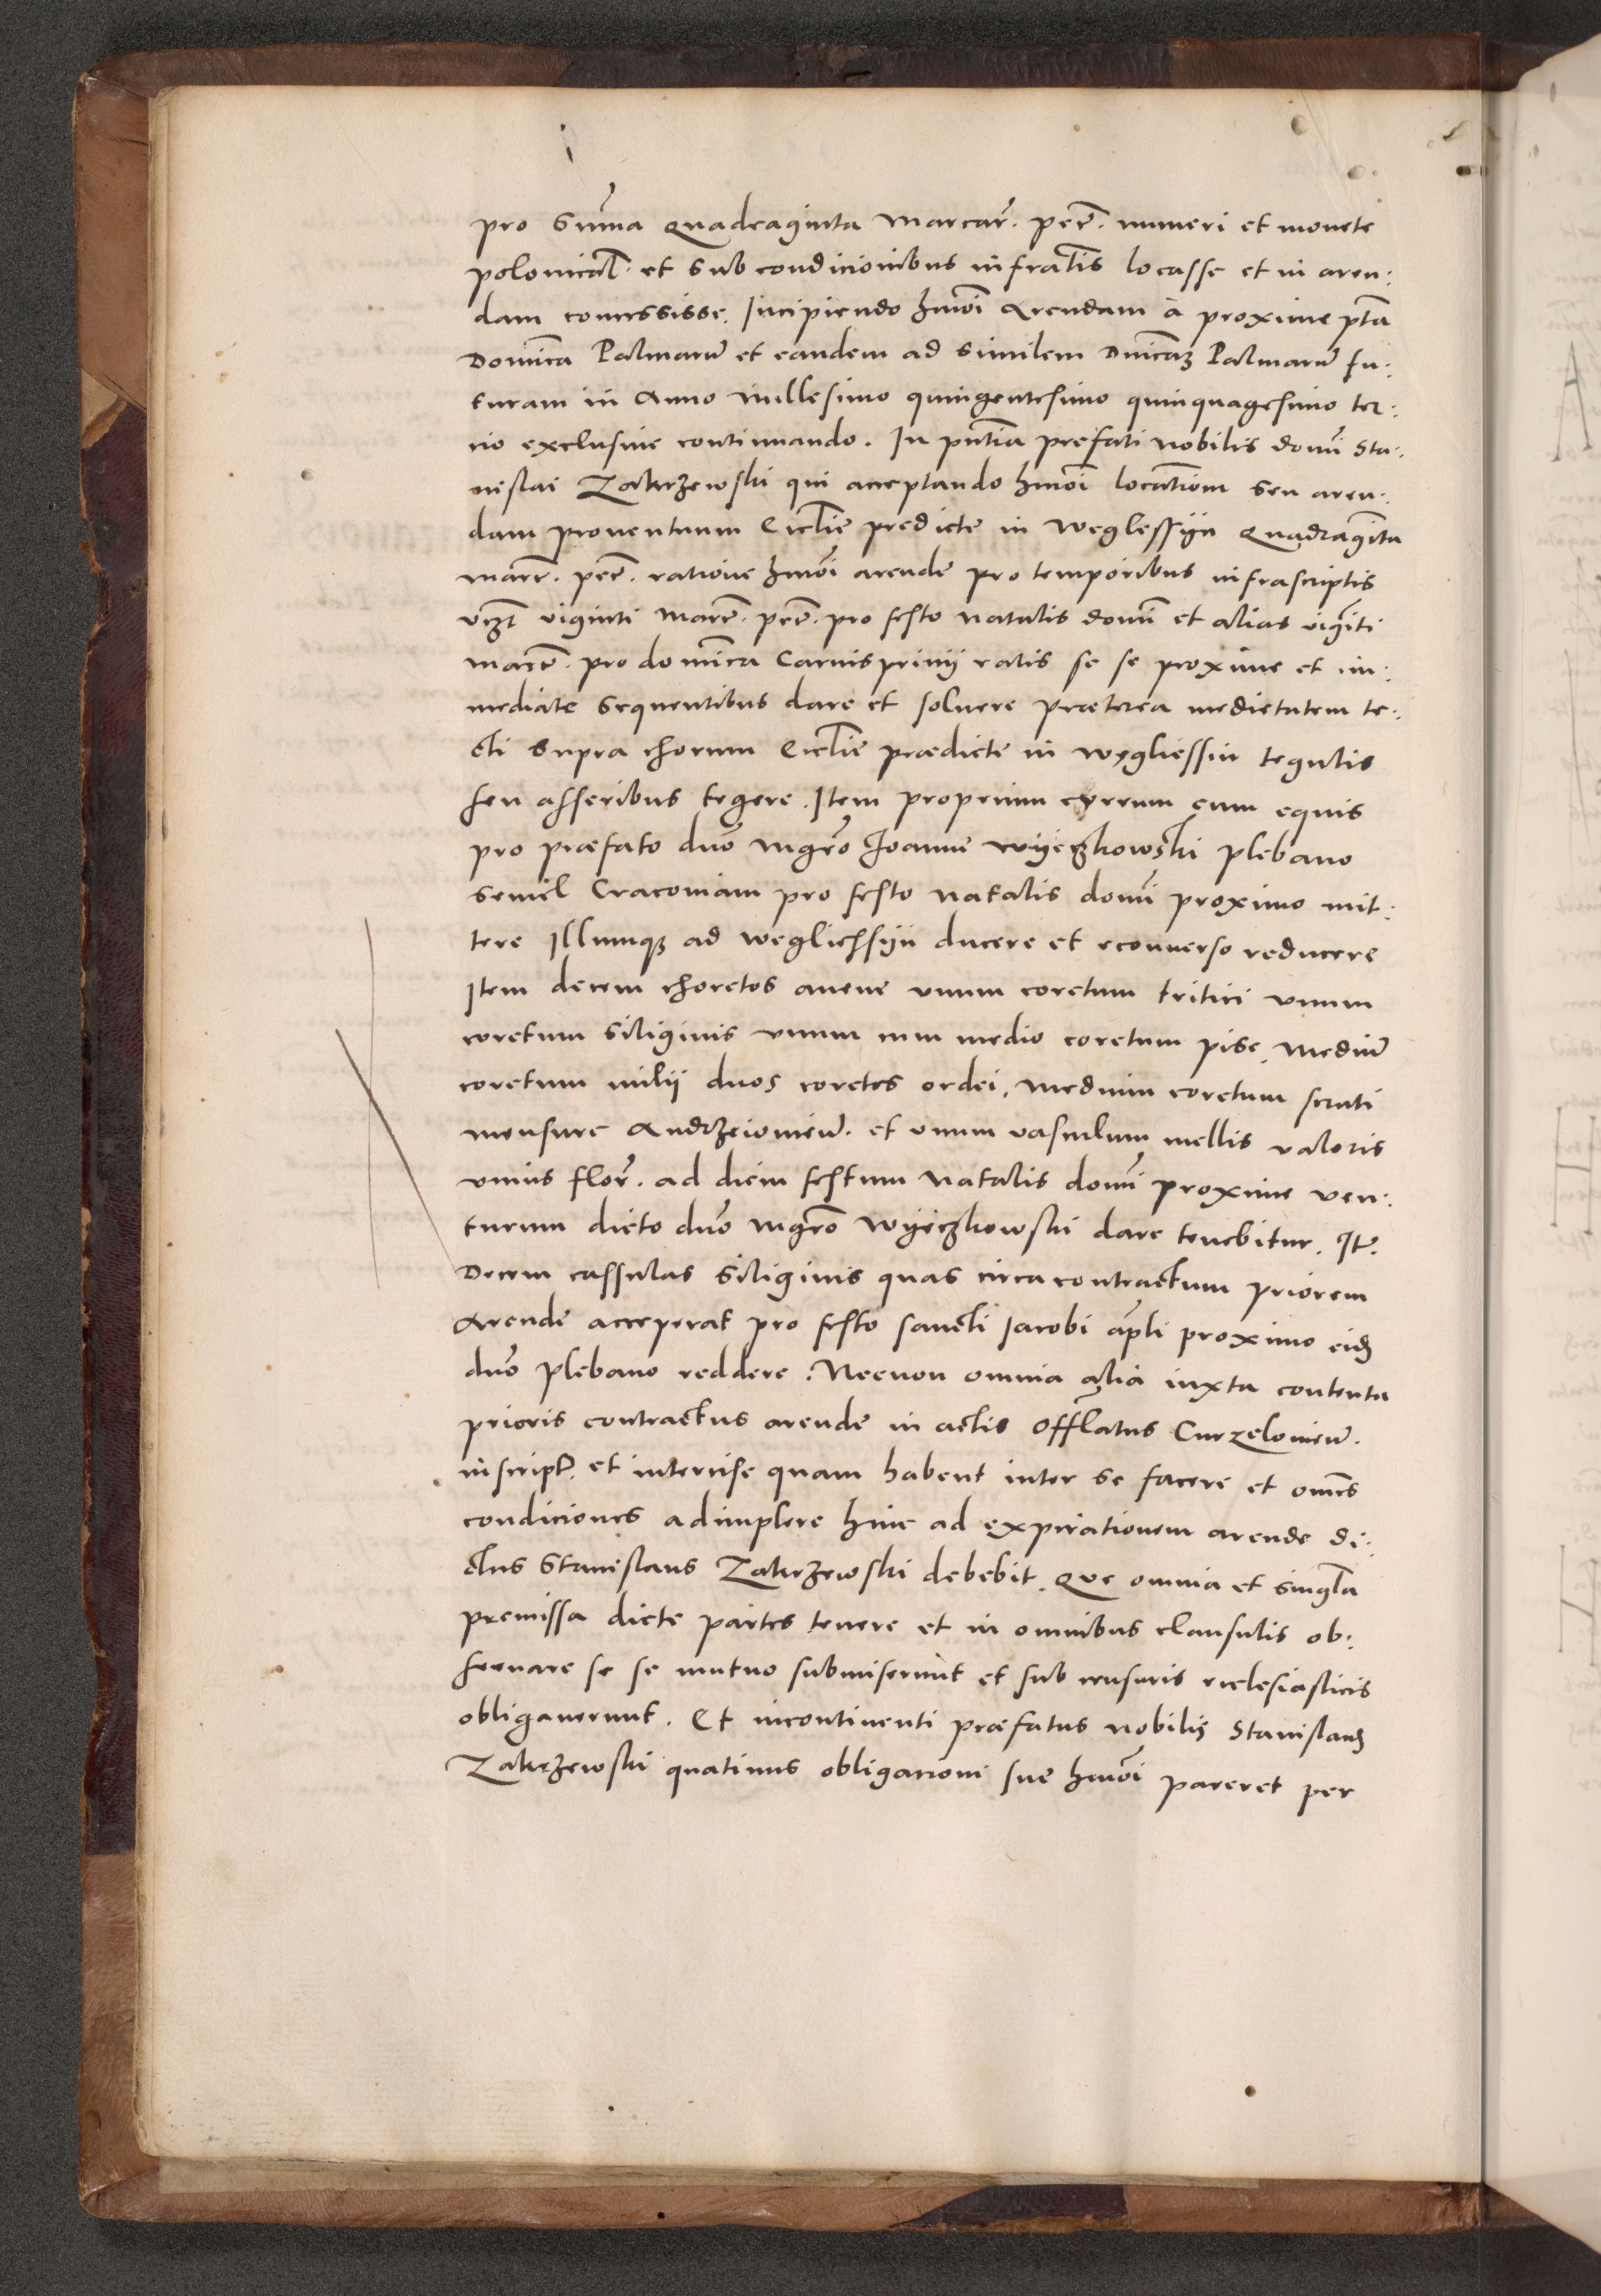 pro Sum̃a Quadraginta Marcar̃. pec̃. numeri et monete
polonical̃. et sub condicionibus infratis locasse et in aren:
dam concessisse. Incipiendo hmõi Arendam à proxime pt̃a
Domĩca Palmarũ et eandem ad similem Dnĩcaȝ Palmarũ fu:
turam in Anno millesimo quingentesimo quinquagesimo ter:
cio exclusiue continuando. In pñtia prefati nobilis domĩ Sta:
nislai Zakrzewski qui acceptando hmõi locatiom̃ seu aren:
dam prouentuum Ecclie predicte in Weglessyn Quadragĩta
marc̃. pec̃. ratione hmõi arende pro temporibus infrascriptis
vzt̃ viginti Marc̃. pec̃. pro festo natalis domĩ et alias vigĩti
marc̃. pro domĩca Carnispriuij ratis se se proxime et im:
mediate sequentibus dare et soluere præterea medietatem te:
cti supra chorum Ecclie prædicte in Wegliessin tegulis
seu asseribus tegere. Item proprium currum cum equis
pro præfato dnõ mgr̃o Joanne Wyeczkowski plebano
semel Cracouiam pro festo natalis domĩ proximo mit:
tere Illumqȝ ad Weglieschyn ducere et econuerso reducere
Item decem choretos auene vnum coretum tritici vnum
coretum siliginis vnum cum medio coretum pise, mediũ
coretum milij duos coretos ordei, medium coretum seruti
mensure Andrzeiouien̄. et vnum vasculum mellis valoris
vnius flor̃. ad diem festum Natalis domĩ proxime ven:
turum dicto dnõ mgr̃o Wyeczkowski dare tenebitur. It̃.
Decem cassulas siliginis quas circa contractum priorem
Arende acceperat pro festo sancti Jacobi ap̃li proximo eidȝ
dnõ plebano reddere. Necnon omnia alia iuxta contenta
prioris contractus arende in actis Offl̃atus Curzelouien̄.
inscript̃. et intercise quam habent inter se facere et om̃es
condiciones adimplere hinc ad expirationem arende di:
ctus Stanislaus Zakrzewski debebit. Que omnia et singl̃a
premissa dicte partes tenere et in omnibus clausulis ob:
seruare se se mutuo submiserunt et sub censuris ecclesiasticis
obligauerunt. Et incontinenti præfatus nobilis Stanislaus
Zakrzewski quatinus obligacioni sue hmõi pareret per